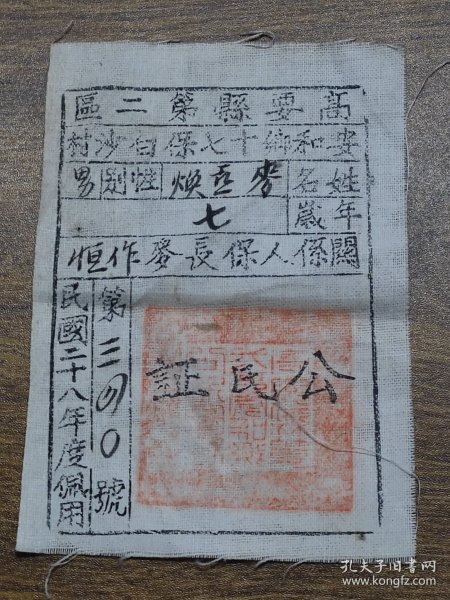 高要縣第二區
安和鄉十七保白沙村
姓名 麥亞煥 性別 男
年歲 七
關係人保長麥作恒
公民証
第三四〇號
民國二十八年度佩用
孔夫子旧书网
www.kongfz.com